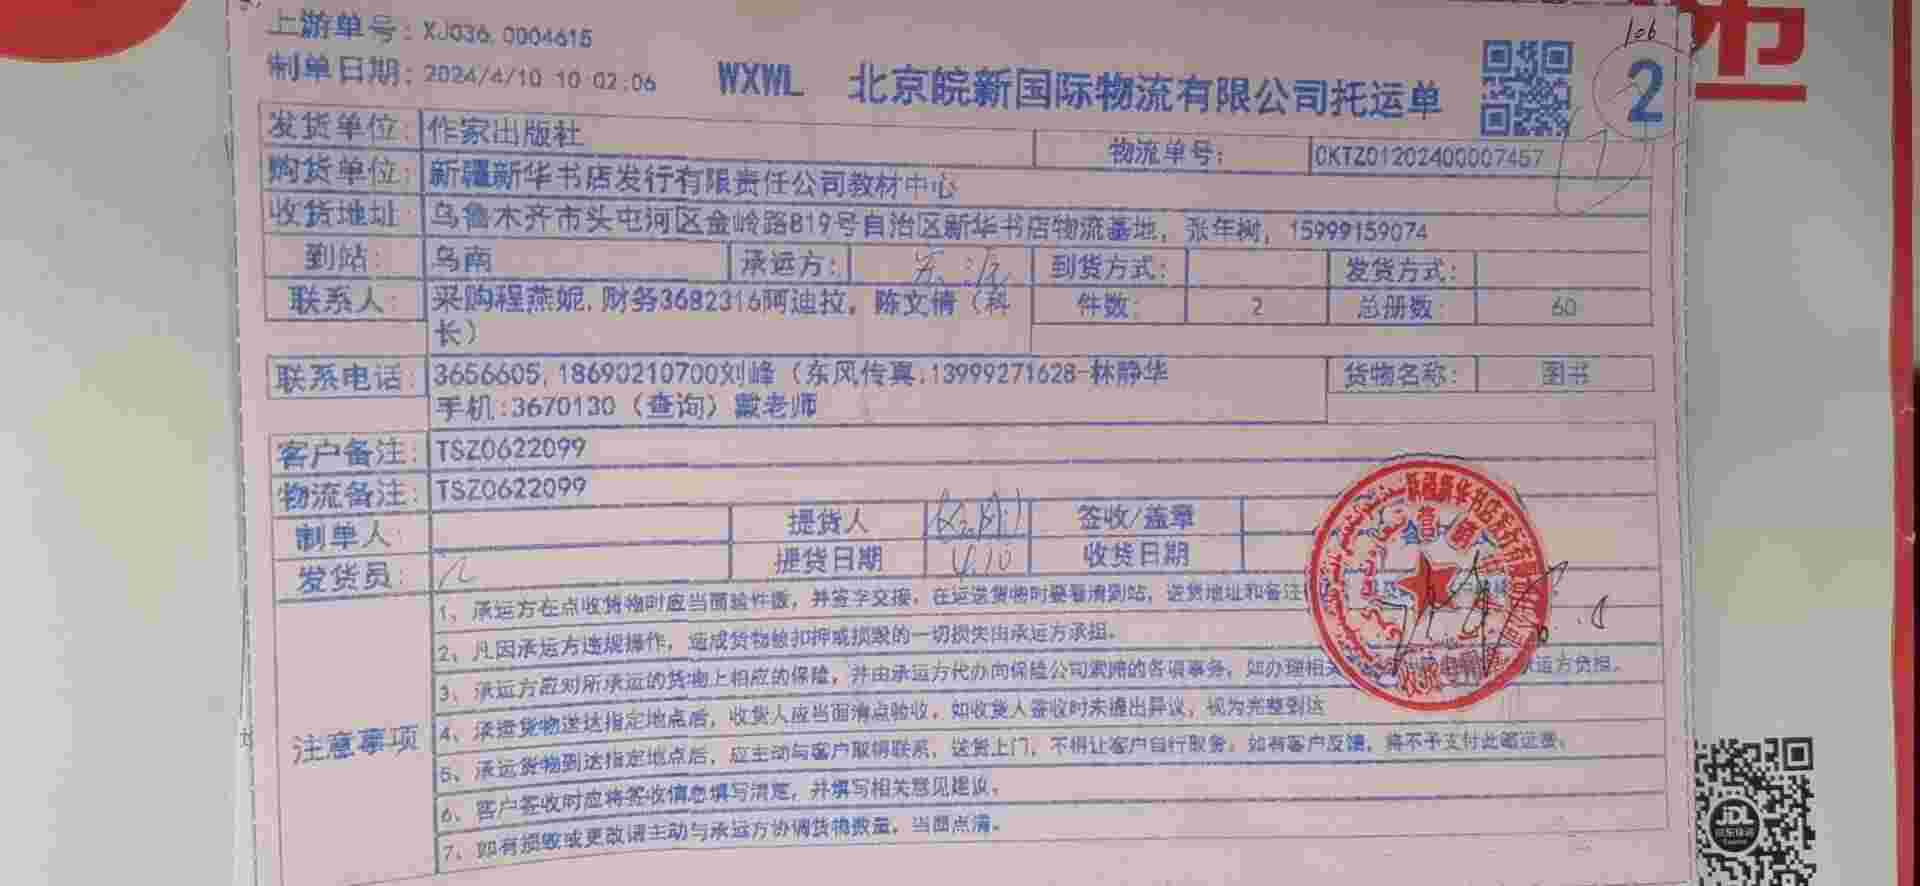 上游单号: XJ036.0004615
106
制单日期: 2024/4/10 10:02:06
WXWL 北京皖新国际物流有限公司托运单
2
发货单位: 作家出版社 物流单号: CKTZ01202400007457
购货单位: 新疆新华书店发行有限责任公司教材中心
收货地址 乌鲁木齐市头屯河区金岭路819号自治区新华书店物流基地, 张年树, 15999159074
到站: 乌南 承运方: 到货方式: 发货方式:
联系人: 采购程燕妮,财务3682316阿迪拉, 陈文倩(科 件数: 2 总册数: 60
长)
联系电话: 3656605,18690210700刘峰(东风传真:13999271628-林静华 货物名称: 图书
手机:3670130(查询)戴老师
客户备注: TSZ0622099
物流备注: TSZ0622099
制单人: 提货人 签收/盖章
发货员: 提货日期 4.10 收货日期
注意事项
1、承运方在点收货物时应当面验件数, 并签字交接, 在运送货物时要看清到站, 送货地址和备注
2、凡因承运方违规操作, 造成货物被扣押或损毁的一切损失由承运方承担.
3、承运方应对所承运的货物上相应的保险, 并由承运方代办向保险公司索赔的各项事务, 如办理相关 承运方负担.
4、承运货物送达指定地点后, 收货人应当面清点验收, 如收货人签收时未提出异议, 视为完整到达
5、承运货物到达指定地点后, 应主动与客户取得联系, 送货上门, 不得让客户自行取货, 如有客户反馈, 将不予支付此笔运费.
6、客户签收时应将签收信息填写清楚, 并填写相关意见建议.
7、如有损毁或更改请主动与承运方协调货物数量, 当面点清.
JDL